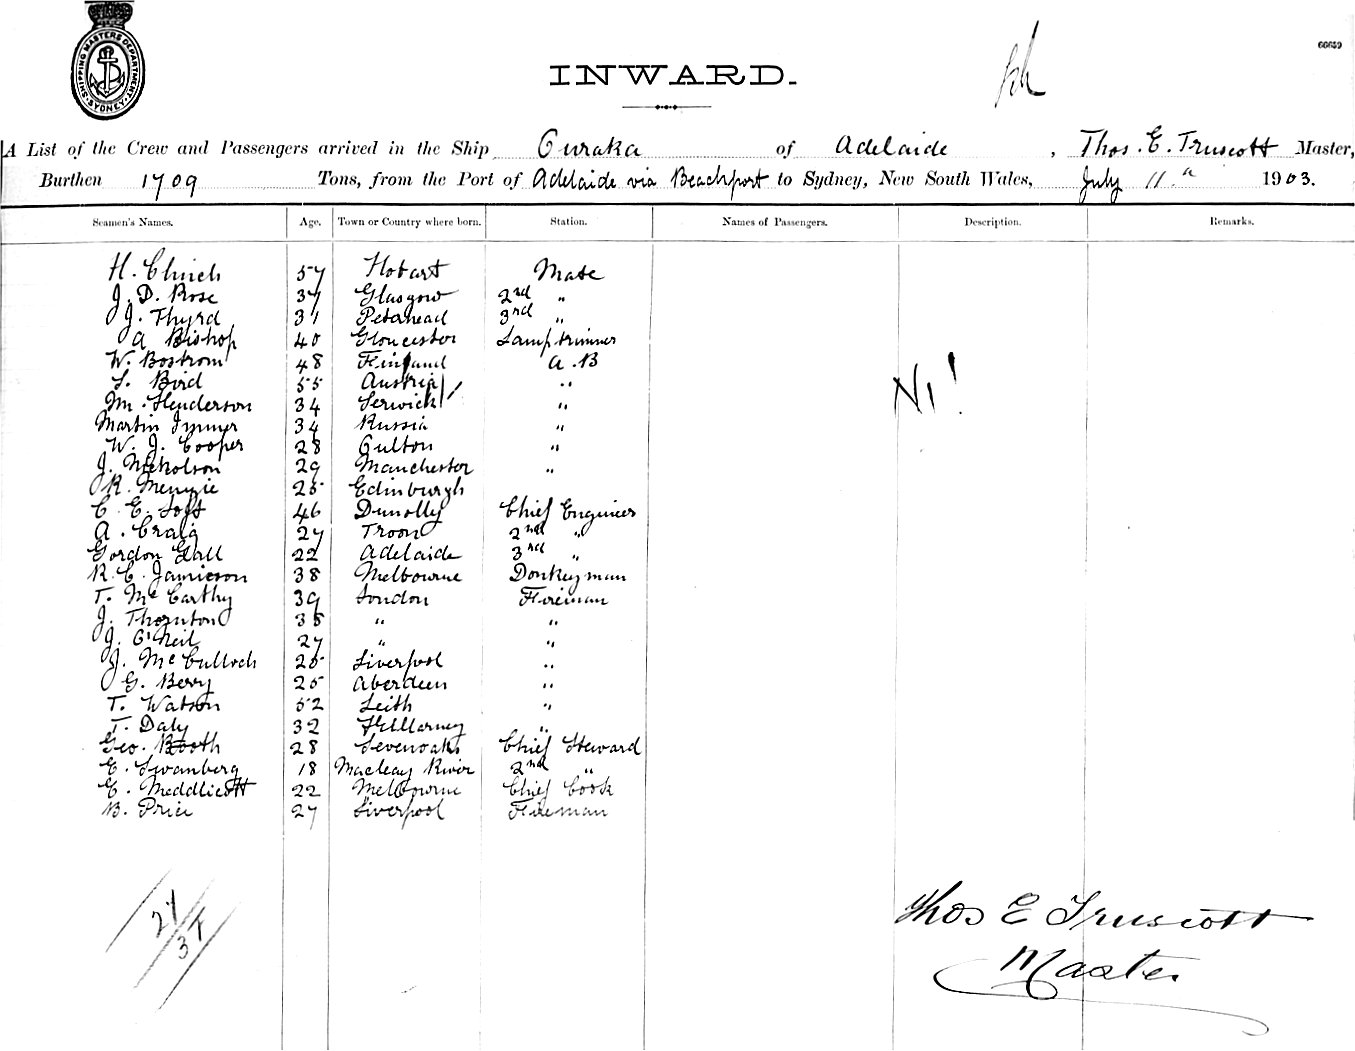 SHIPPING MASTERS DEPARTMENT SYDNEY
60659
INWARD.
A List of the Crew and Passengers arrived in the Ship Ouraka of Adelaide, Thos. E. Truscott Master,
Burthen 1709 Tons, from the Port of Adelaide via Beachport to Sydney, New South Wales, July 11 1903.
Seamen's Names. Age. Town or Country where born. Station. Names of Passengers. Description. Remarks.
H. 57 Hobart Mate
J. D. Rose 37 Glasgow 2nd "
J. Thyrd 31 Peterhead 3rd "
A Bishop 40 Gloucester Lamptrimmer
W. Bostrom 48 Finland A.B
Bird 55 Austria "
M. Henderson 34 Lerwick "
Martin 34 Russia "
W. J. Cooper 28 "
J. Nicholson 29 Manchester "
R. Menzie 25 Edinburgh
C. E. 46 Dunolly Chief Engineer
A. Craig 27 Troon 2nd "
Gordon Gall 22 Adelaide 3rd "
R. C. Jamieson 38 Melbourne Donkeyman
T. McCarthy 39 London Fireman
J. Thornton 35 " "
J. O'Neil 27 " "
J. McCulloch 25 Liverpool "
G. Berry 25 Aberdeen "
T. Watson 52 Leith "
T. Daly 32 Killarney "
Geo. Booth 28 Sevenoaks Chief Steward
E. Swanberg 18 Macleay River 2nd "
E. Meddlicott 22 Melbourne Chief Cook
B. Price 27 Liverpool Fireman
Nil
Thos E Truscott
Master